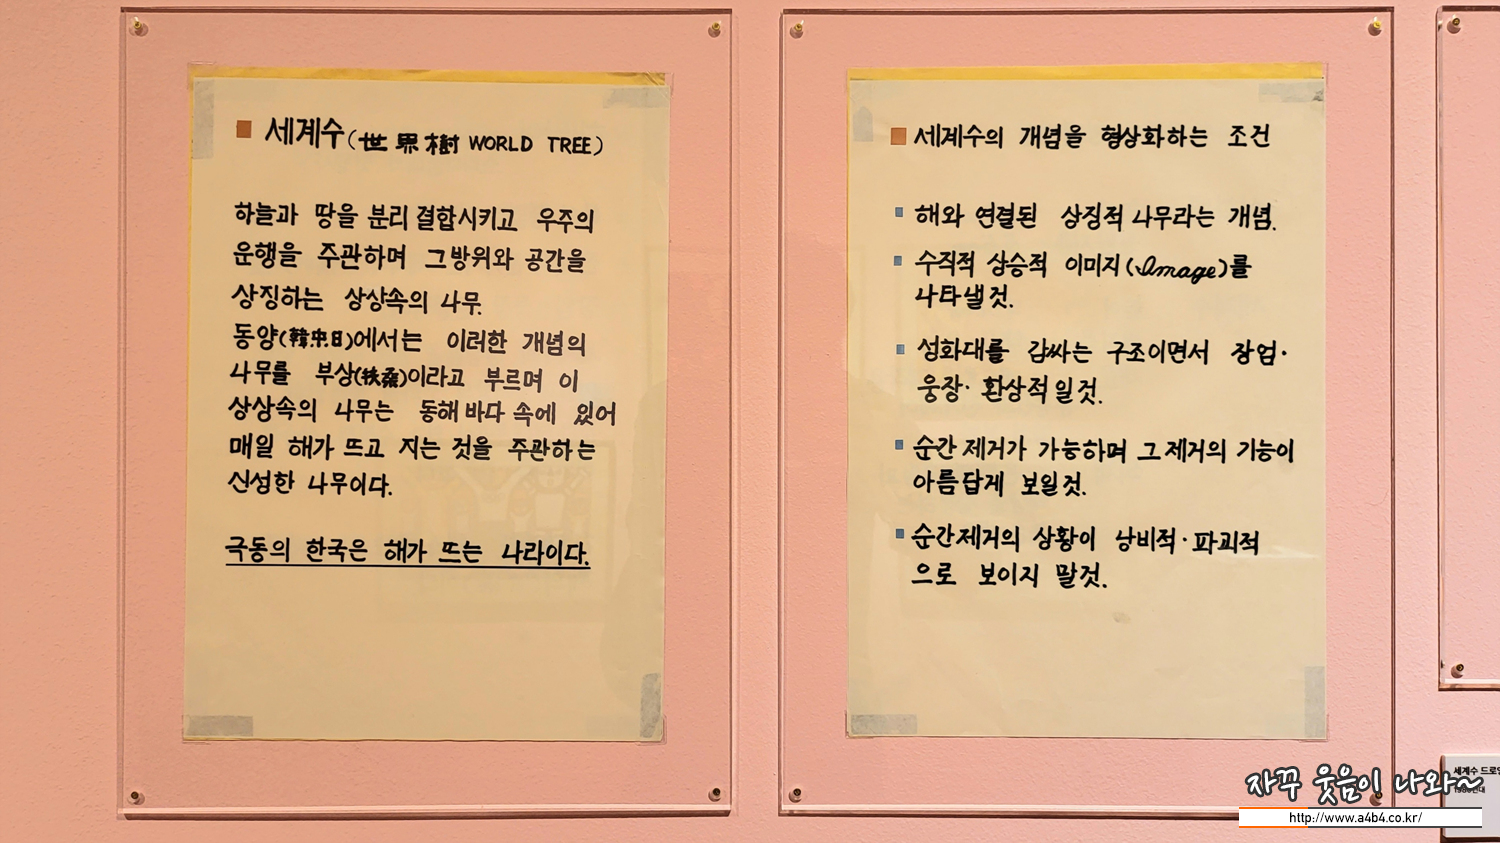 세계수(世界樹 WORLD TREE)
하늘과 땅을 분리 결합시키고 우주의
운행을 주관하며 그 방위와 공간을
상징하는 상상속의 나무.
동양(韓中日)에서는 이러한 개념의
나무를 부상(扶桑)이라고 부르며 이
상상속의 나무는 동해 바다 속에 있어
매일 해가 뜨고 지는 것을 주관하는
신성한 나무이다.
극동의 한국은 해가 뜨는 나라이다.
세계수의 개념을 형상화하는 조건
해와 연결된 상징적 나무라는 개념.
수직적 상승적 이미지(Image)를
나타낼것.
성화대를 감싸는 구조이면서 장엄·
웅장·환상적일것.
순간 제거가 가능하며 그 제거의 기능이
아름답게 보일것.
순간제거의 상황이 낭비적·파괴적
으로 보이지 말것.
세계수 드로잉
자꾸 웃음이 나와~
http://www.a4b4.co.kr/